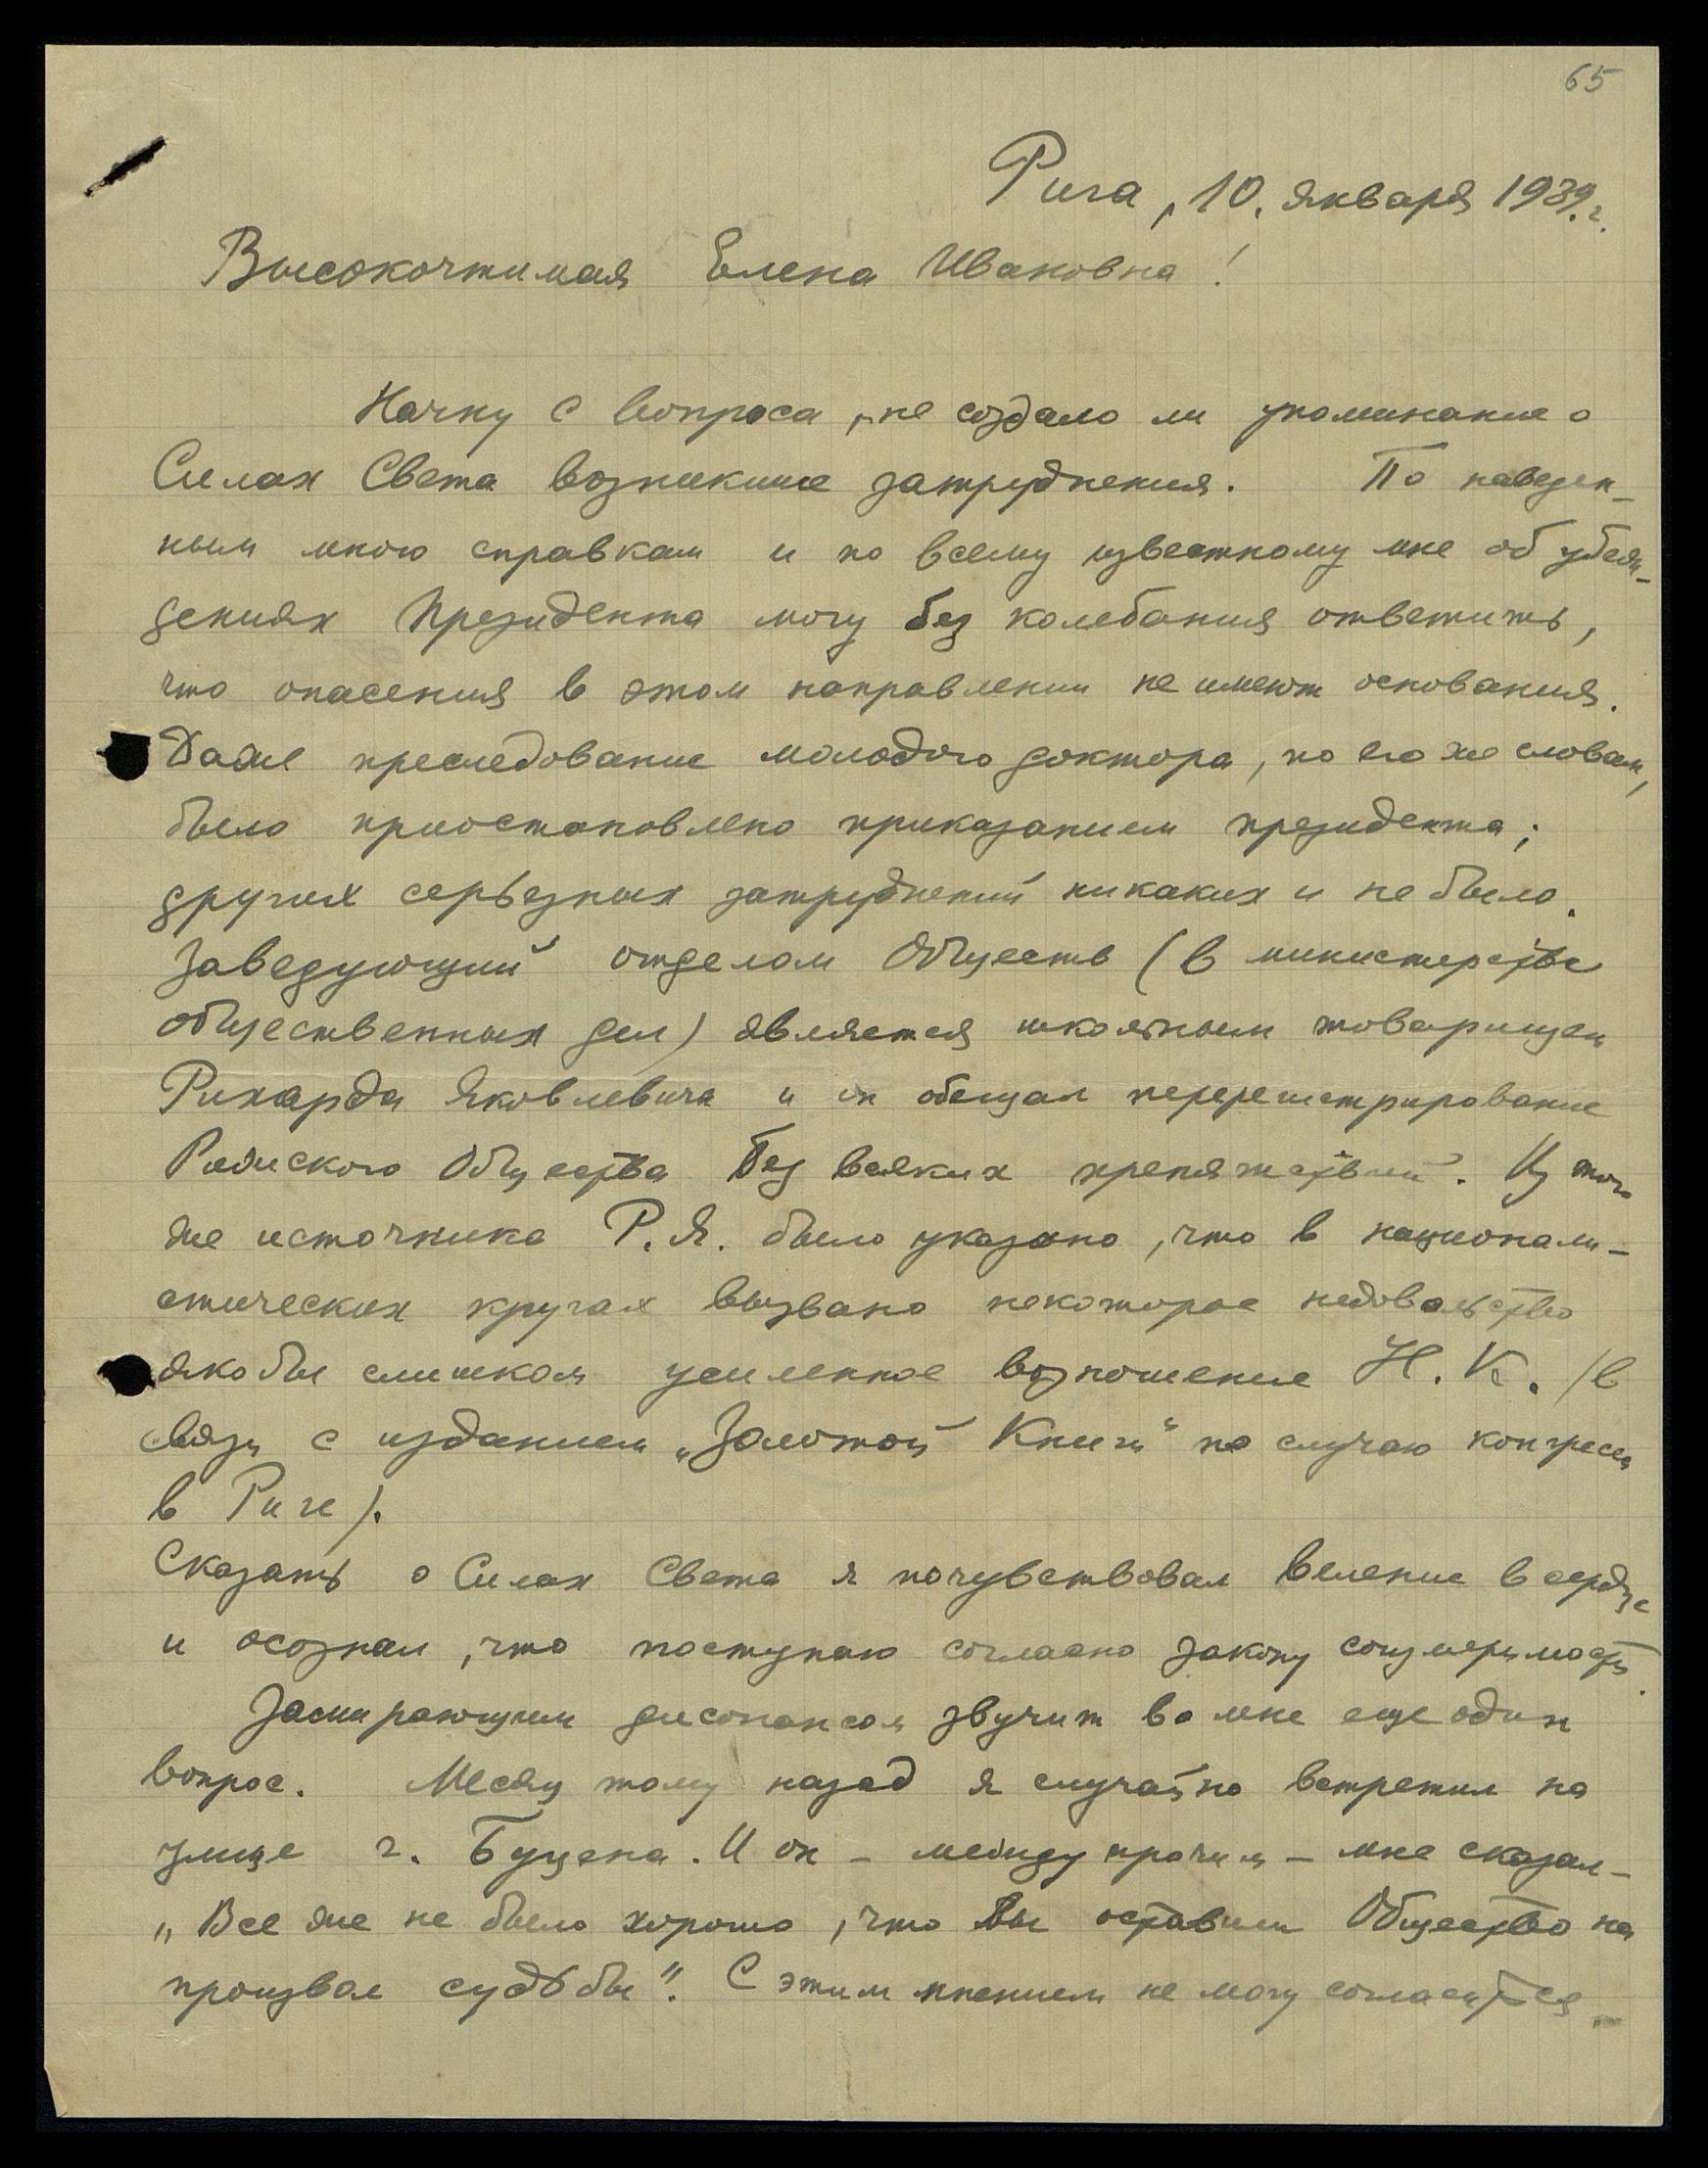 65
Рига, 10. января 1939. г.
Высокочтимая Елена Ивановна!
Начну с вопроса, не создало ли упоминание о
Силах Света возникшие затруднения. По наведен-
ным мною справкам и по всему известному мне об убеж-
дениях Президента могу без колебания ответить,
что опасения в этом направлении не имеют основания.
Даже преследование молодого доктора, по его же словам,
было приостановлено приказанием президента;
других серьезных затруднений никаких и не было.
Заведующий отделом Обществ (в министерстве
общественных дел) является школьным товарищем
Рихарда Яковлевича и он обещал перерегистрирование
Рижского Общества без всяких препятствий. Из того
же источника Р.Я. было указано, что в национали-
стических кругах вызвано некоторое недовольство
якобы слишком усиленное возношение Н.К. (в
связи с изданием „Золотой Книги" по случаю конгресса
в Риге).
Сказать о Силах Света я почувствовал веление в сердце
и осознал, что поступаю согласно закону соизмеримости.
Замирающим дисонансом звучит во мне еще один
вопрос. Месяц тому назад я случайно встретил на
улице г. Буцена. И он – между прочим – мне сказал –
„Все же не было хорошо, что Вы оставили Общество на
произвол судьбы". С этим мнением не могу согласиться.